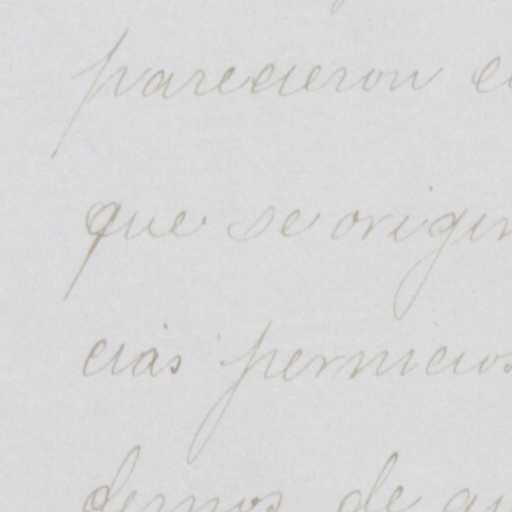 parecieron
que se origin
cias pernicios
demos de